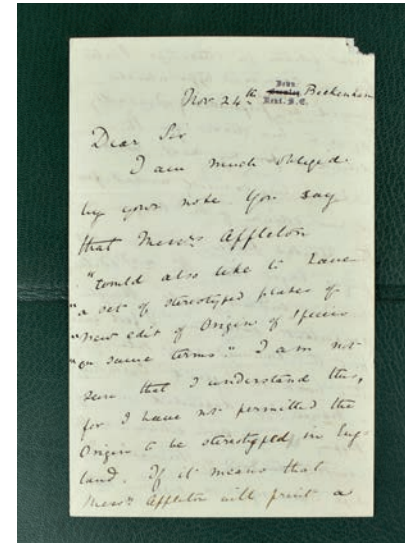 Down
Bromley
Kent. S.E.
Nov 24th Beckenham
Dear Sir
I am much obliged
by your note. You say
that Messrs Appleton
"would also like to have
"a set of stereotyped plates of
"new edit of Origin of Species
"on same terms." I am not
sure that I understand this,
for I have not permitted the
Origin to be stereotyped in Eng-
land. If it means that
Messrs Appleton will print a